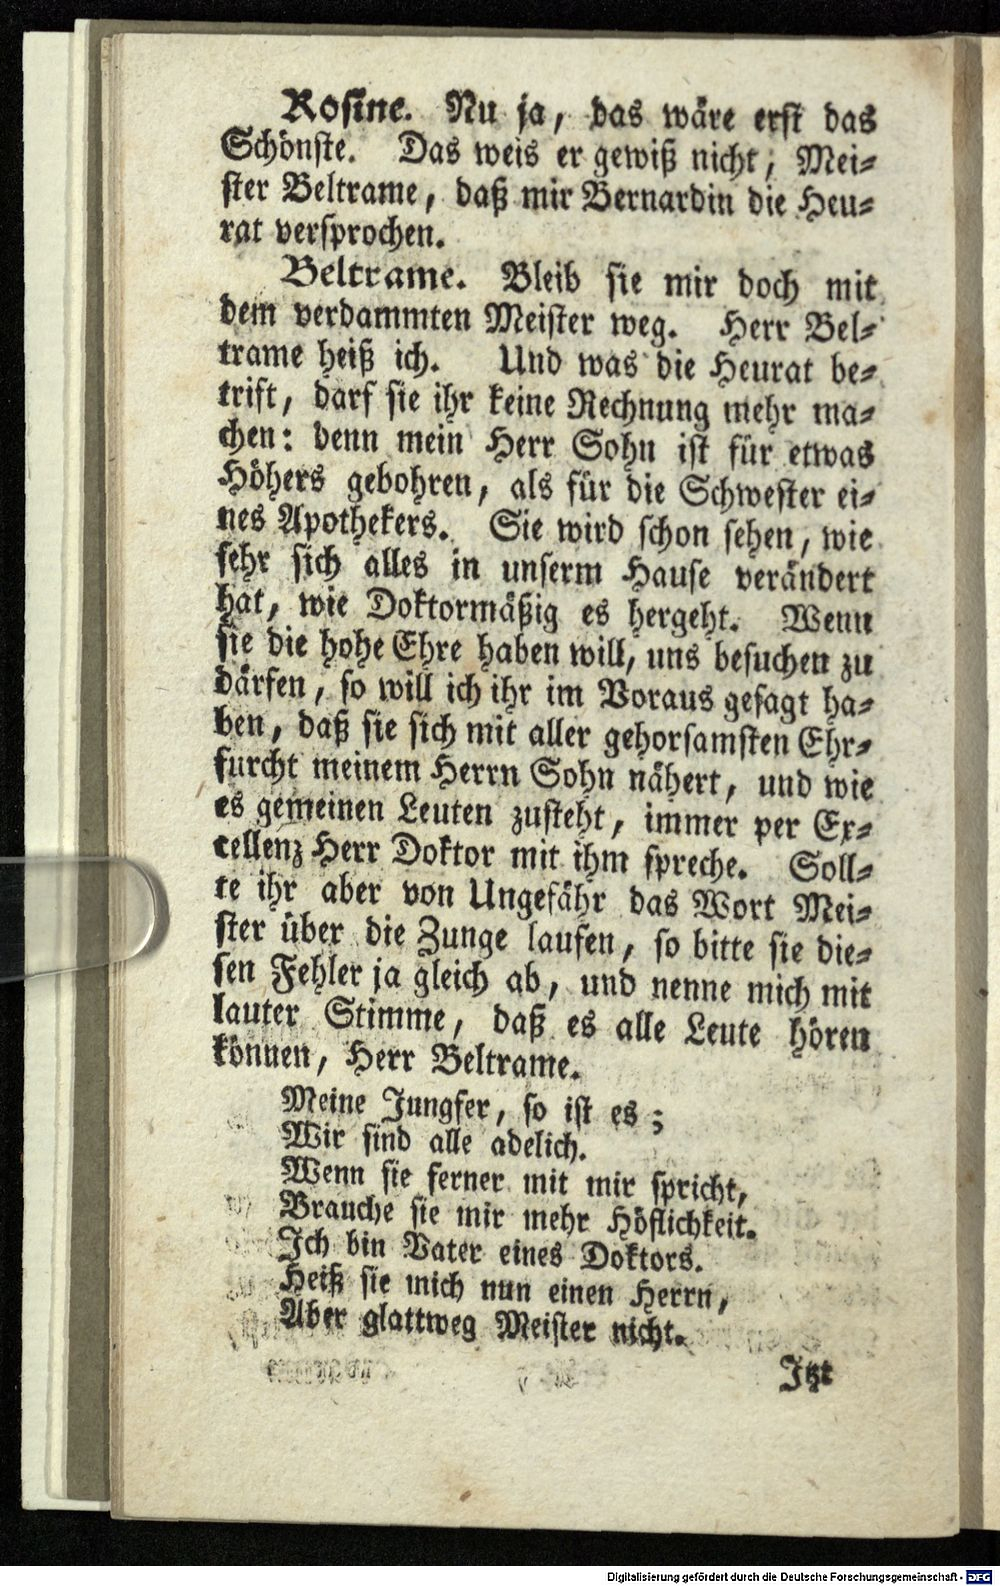 Rosine. Nu ja, das wäre erst das
Schönste. Das weis er gewiß nicht, Mei⸗
ster Beltrame, daß mir Bernardin die Heu⸗
rat versprochen.
Beltrame. Bleib sie mir doch mit
dem verdammten Meister weg. Herr Bel⸗
trame heiß ich. Und was die Heurat be⸗
trift, darf sie ihr keine Rechnung mehr ma⸗
chen: denn mein Herr Sohn ist für etwas
Höhers gebohren, als für die Schwester ei⸗
nes Apothekers. Sie wird schon sehen, wie
sehr sich alles in unserm Hause verändert
hat, wie Doktormäßig es hergeht. Wenn
sie die hohe Ehre haben will, uns besuchen zu
därfen, so will ich ihr im Voraus gesagt ha⸗
ben, daß sie sich mit aller gehorsamsten Ehr⸗
furcht meinem Herrn Sohn nähert, und wie
es gemeinen Leuten zusteht, immer per Ex⸗
cellenz Herr Doktor mit ihm spreche. Soll⸗
te ihr aber von Ungefähr das Wort Mei⸗
ster über die Zunge laufen, so bitte sie die⸗
sen Fehler ja gleich ab, und nenne mich mit
lauter Stimme, daß es alle Leute hören
können, Herr Beltrame.
Meine Jungfer, so ist es;
Wir sind alle adelich.
Wenn sie ferner mit mir spricht,
Brauche sie mir mehr Höflichkeit.
Ich bin Vater eines Doktors.
Heiß sie mich nun einen Herrn,
Aber glattweg Meister nicht.
Itzt
Digitalisierung gefördert durch die Deutsche Forschungsgemeinschaft - DFG